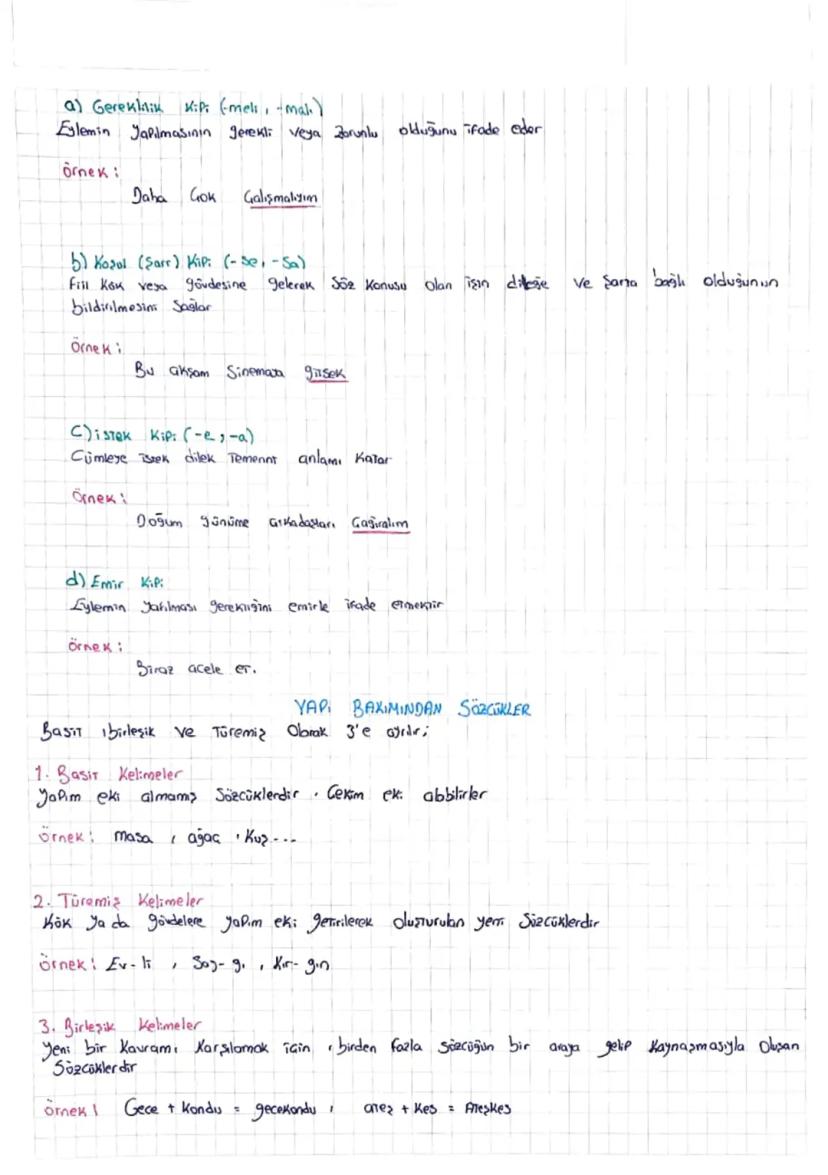 a) Gereklilik Kipi (-meli, -malı)
Eylemin yapılmasının gerekli veya zorunlu olduğunu ifade eder
Örnek:
Daha Çok Çalışmalıyım
b) Koşul (Şart) Kipi (-se, -sa)
Fiil kök veya gövdesine gelerek söz konusu olan işin dileğe ve şarta bağlı olduğunun
bildirilmesini sağlar
Örnek:
Bu akşam Sinemaya gitsek
C) istek Kipi (-e, -a)
Cümleye istek dilek Temenni anlamı Katar
Örnek:
Doğum günüme arkadaşları Çağıralım
d) Emir Kipi
Eylemin yapılması gerektiğini emirle ifade etmektir
Örnek:
Biraz acele et.
YAPI BAKIMINDAN SÖZCÜKLER
Basit, birleşik ve Türemiş Olarak 3'e ayrılır;
1. Basit Kelimeler
Yapım eki almamış Sözcüklerdir. Çekim eki alabilirler
Örnek: masa, ağaç, Kuş...
2. Türemiş Kelimeler
Kök ya da gövdelere yapım eki getirilerek oluşturulan yeni Sözcüklerdir
Örnek: Ev-li, Say-gı, Kır-gın
3. Birleşik Kelimeler
Yeni bir Kavramı Karşılamak için, birden fazla sözcüğün bir araya gelip Kaynaşmasıyla Oluşan
Sözcüklerdir
Örnek: Gece + Kondu = gecekondu, ateş + Kes = Ateşkes